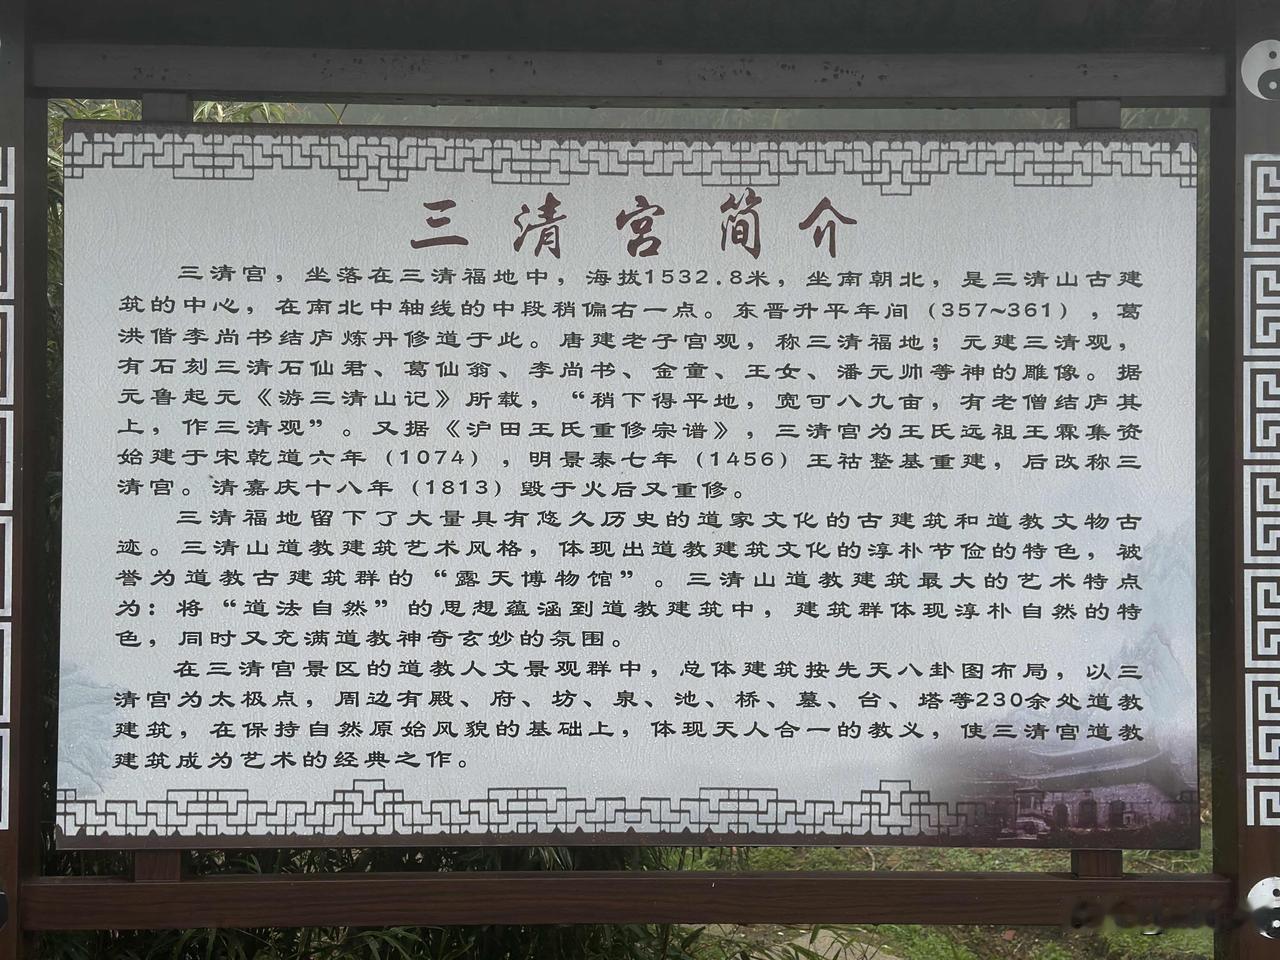 三清宫简介
三清宫，坐落在三清福地中，海拔1532.8米，坐南朝北，是三清山古建
筑的中心，在南北中轴线的中段稍偏右一点。东晋升平年间（357~361），葛
洪偕李尚书结庐炼丹修道于此。唐建老子宫观，称三清福地；元建三清观，
有石刻三清石仙君、葛仙翁、李尚书、金童、王女、潘元帅等神的雕像。据
元鲁起元《游三清山记》所载，“稍下得平地，宽可八九亩，有老僧结庐其
上，作三清观”。又据《沪田王氏重修宗谱》，三清宫为王氏远祖王霖集资
始建于宋乾道六年（1074），明景泰七年（1456）王祜整基重建，后改称三
清宫。清嘉庆十八年（1813）毁于火后又重修。
三清福地留下了大量具有悠久历史的道家文化的古建筑和道教文物古
迹。三清山道教建筑艺术风格，体现出道教建筑文化的淳朴节俭的特色，被
誉为道教古建筑群的“露天博物馆”。三清山道教建筑最大的艺术特点
为：将“道法自然”的思想蕴涵到道教建筑中，建筑群体现淳朴自然的特
色，同时又充满道教神奇玄妙的氛围。
在三清宫景区的道教人文景观群中，总体建筑按先天八卦图布局，以三
清宫为太极点，周边有殿、府、坊、泉、池、桥、墓、台、塔等230余处道教
建筑，在保持自然原始风貌的基础上，体现天人合一的教义，使三清宫道教
建筑成为艺术的经典之作。